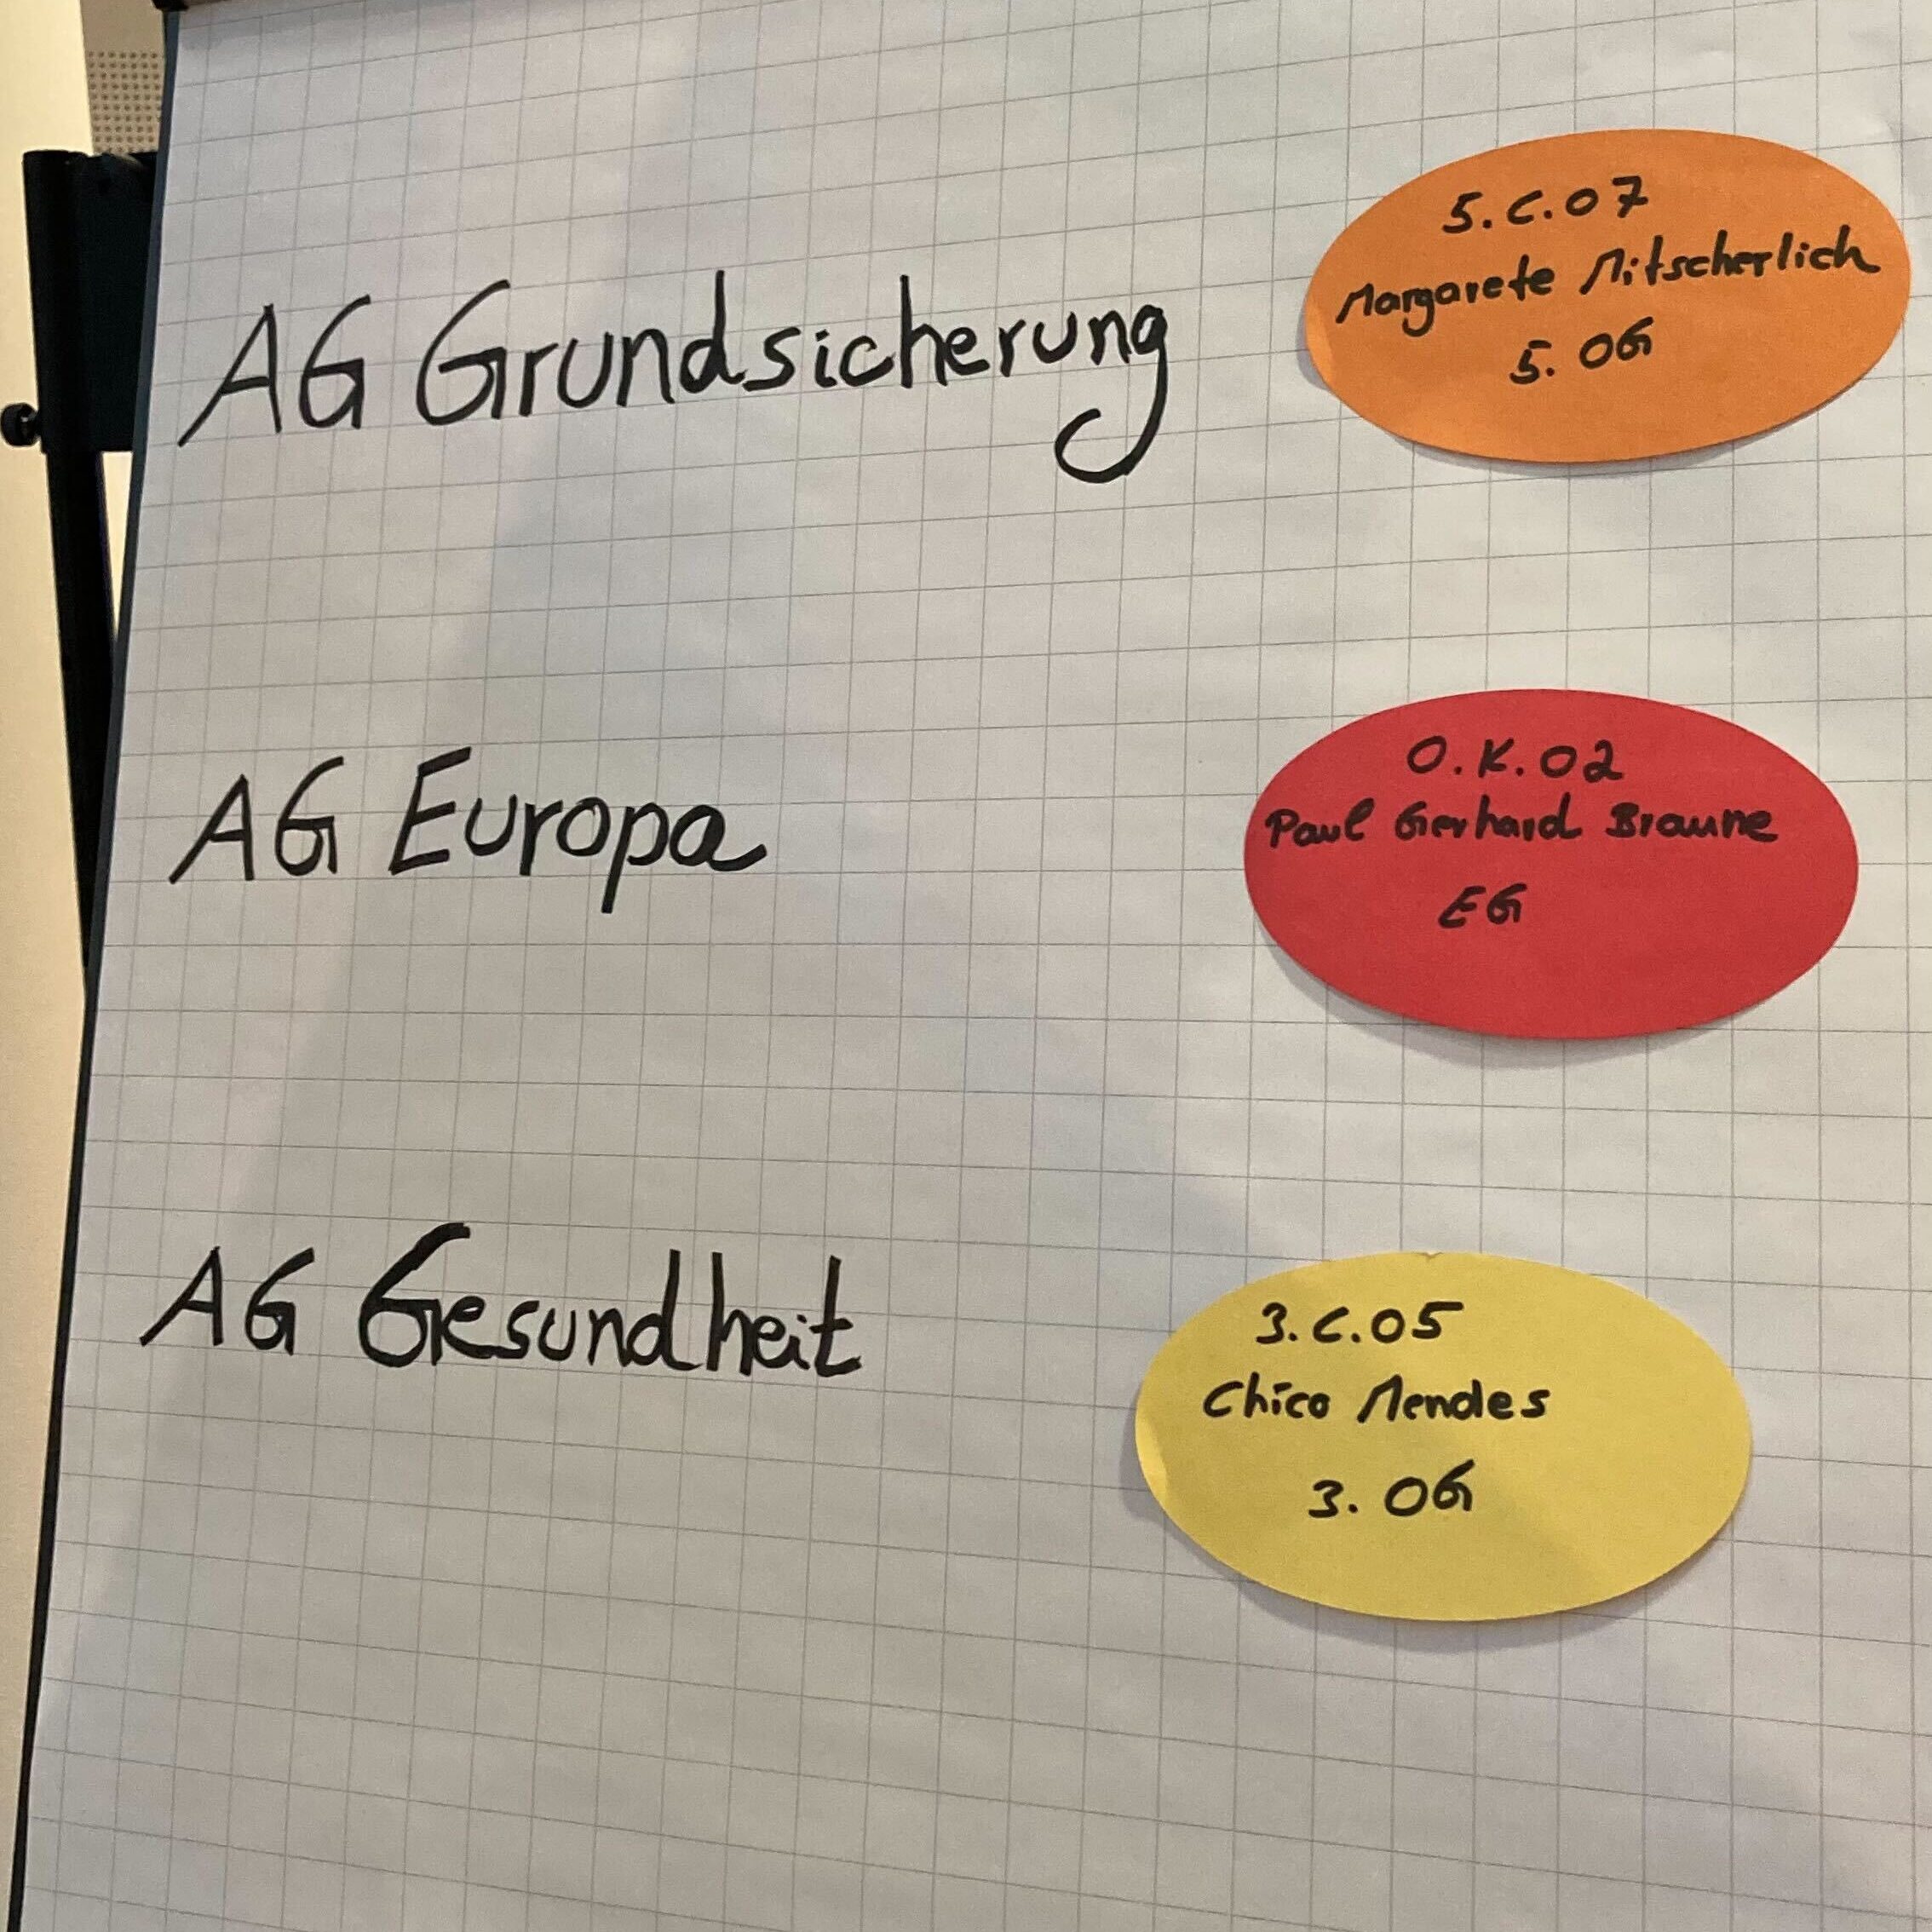 AG Grundsicherung
5.C.07
Margarete Mitscherlich
5. OG
AG Europa
0.K.02
Paul Gerhard Braune
EG
AG Gesundheit
3.C.05
Chico Mendes
3. OG